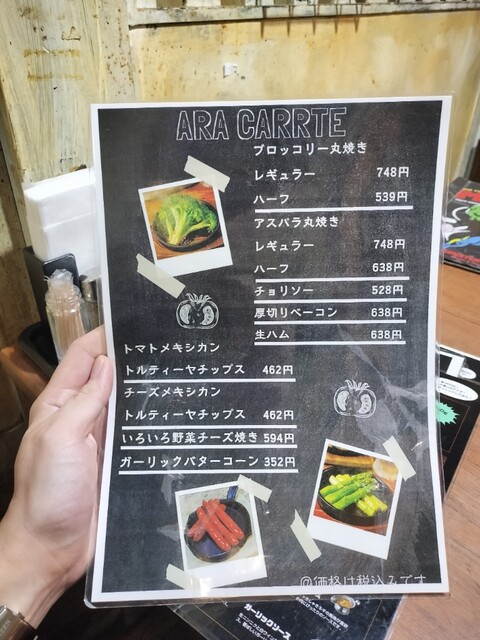 ARA CARRTE
ブロッコリー丸焼き
レギュラー 748円
ハーフ 539円
アスパラ丸焼き
レギュラー 748円
ハーフ 638円
チョリソー 528円
厚切りベーコン 638円
生ハム 638円
トマトメキシカン
トルティーヤチップス 462円
チーズメキシカン
トルティーヤチップス 462円
いろいろ野菜チーズ焼き 594円
ガーリックバターコーン 352円
@価格は税込みです
ガーリックソース